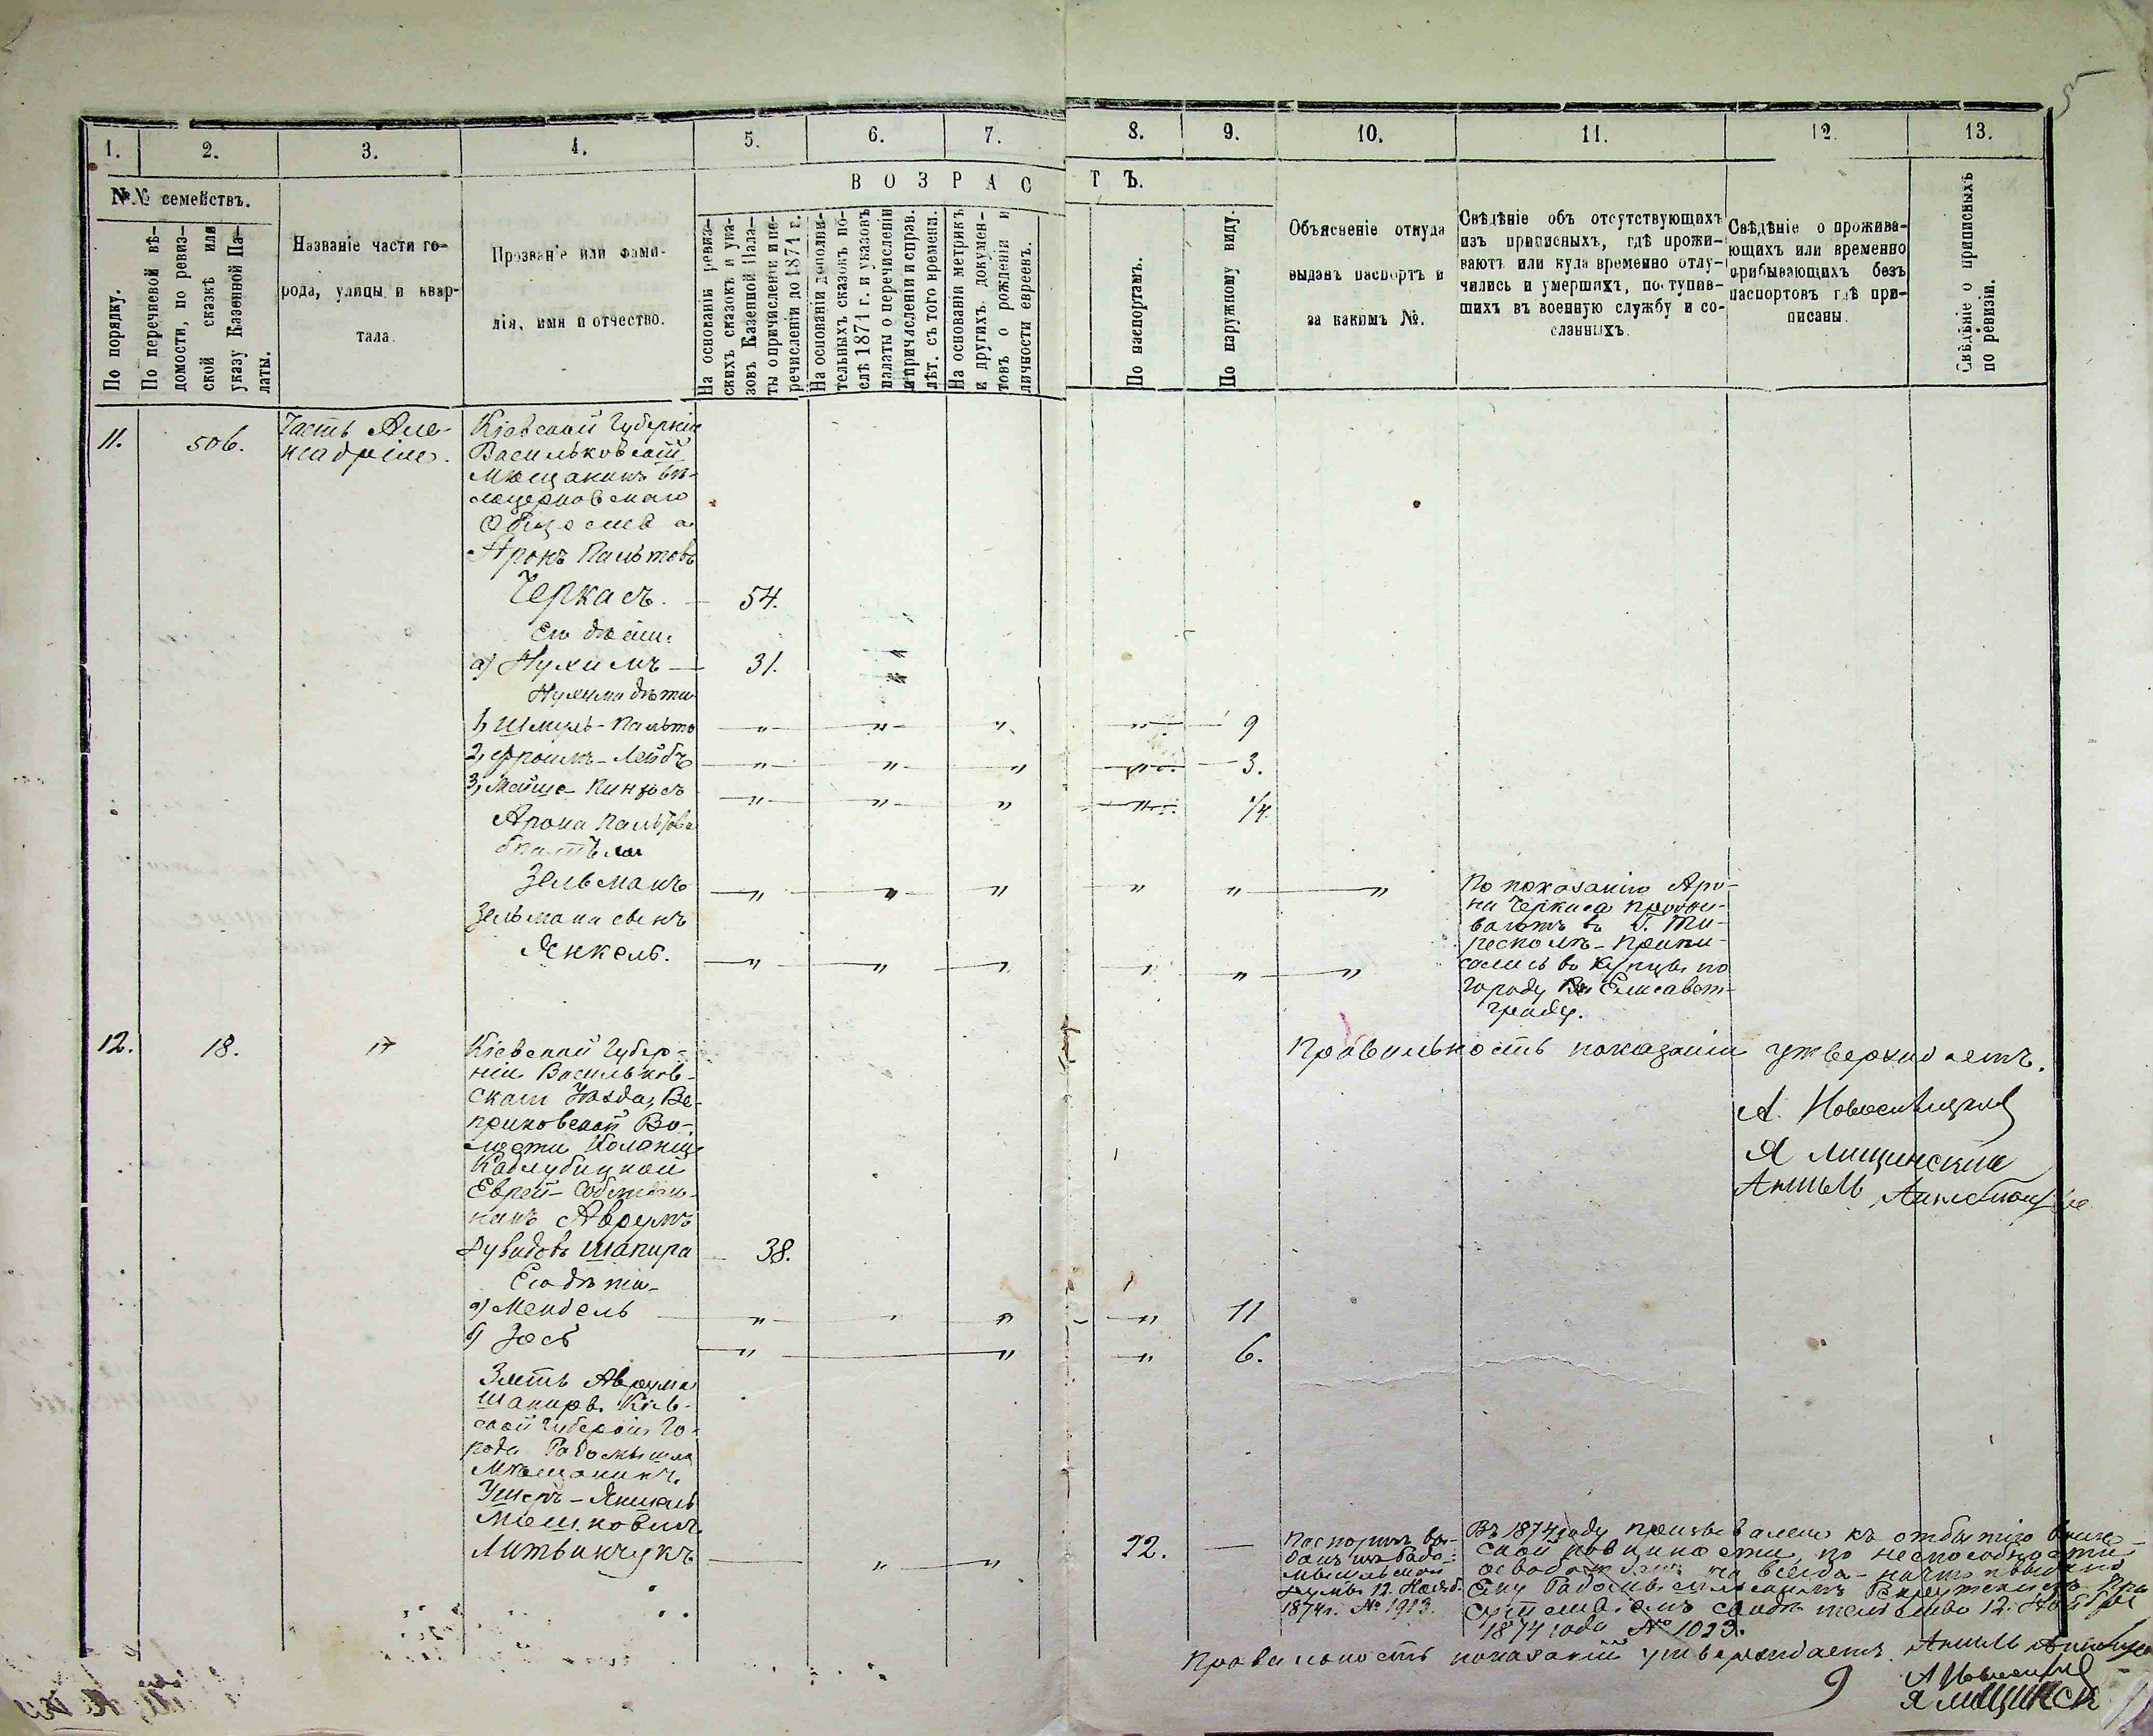 5
1.
2.
3.
4.
5.
6.
7.
8.
9.
10.
11.
12.
13.
№№ семействъ.
По порядку.
По перечневой вѣ-
домости, по ревиз-
ской сказкѣ или
указу Казенной Па-
латы.
Названіе части го-
рода, улицы и квар-
тала.
Прозваніе или фами-
лія, имя и отчество.
ВОЗРАС
ТЪ.
На основаніи ревиз-
скихъ сказокъ и ука-
зовъ Казенной Пала-
ты о причисленіи и пе-
речисленіи до 1871 г.
На основаніи дополни-
тельныхъ сказокъ по-
слѣ 1871 г. и указовъ
палаты о перечисленіи
и причисленіи и справ.
лѣт. съ того времени.
На основаніи метрикъ
и другихъ докумен-
товъ о рожденіи и
личности евреевъ.
По паспортамъ.
По наружному виду.
Объясненіе откуда
выданъ паспортъ и
за какимъ №.
Свѣдѣніе объ отсутствующихъ
изъ приписныхъ, гдѣ прожи-
ваютъ или куда временно отлу-
чились и умершихъ, поступив-
шихъ въ военную службу и со-
сланныхъ.
Свѣдѣніе о прожива-
ющихъ или временно
прибывающихъ безъ
паспортовъ гдѣ при-
писаны.
Свѣдѣніе о приписныхъ
по ревизіи.
11.
506.
Часть Але-
Кіевской Губерніи
Васильковскій
Мѣщанинъ Бѣ-
лоцерковскаго
Общества
Аронъ Пальтовъ
Черкасъ. 54.
Его дѣти:
а) Нухимъ 31.
Нухима дѣти
1, Шмуль-Пальто " " " " 9
2, Фроимъ-Лейбъ " " " " 3.
3, Мойше-Пинхосъ " " " " 1/4.
Арона Пальтова
братья
Зельманъ " " " " " "
Зельмана сынъ
Янкель. " " " " " "
По показанію Аро-
на Черкаса прожи-
ваютъ въ Г. Ти-
располѣ - припи-
сались въ купцы по
городу Елисавет-
граду.
12.
18.
"
Кіевской Губер-
ніи Васильков-
скаго Уѣзда, Ве-
приковской Во-
лости Колоніи
Каблубицкой
Еврей-Собствен-
никъ Аврумъ
Дувидовъ Шапира 38.
Его дѣти
а) Мендель " " " " 11
б) Зось " " " 6.
Зять Аврума
Шапира. Кіев-
ской Губерніи Го-
рода Радомысля
Мѣщанинъ
Ушеръ-Янкель
Мошковичъ
Литвинчукъ " " 22.
Правильность показанія утверждаетъ.
А. Новоселицкій
Я Лищинскій
Аншель
Паспортъ вы-
данъ изъ Радо-
мысльской
Думы 12. Нояб.
1874 г. № 1913.
Въ 1874 году призывался къ отбытію воин-
ской повинности, по неспособности
освобожденъ на всегда - на что выдано
Ему Радомысльскимъ Рекрутскимъ При-
сутствіемъ свидѣтельство 12. Ноября
1874 года № 1023.
Правильность показаній утверждаетъ. Аншель
А Новоселицкій
Я Лищинск
9